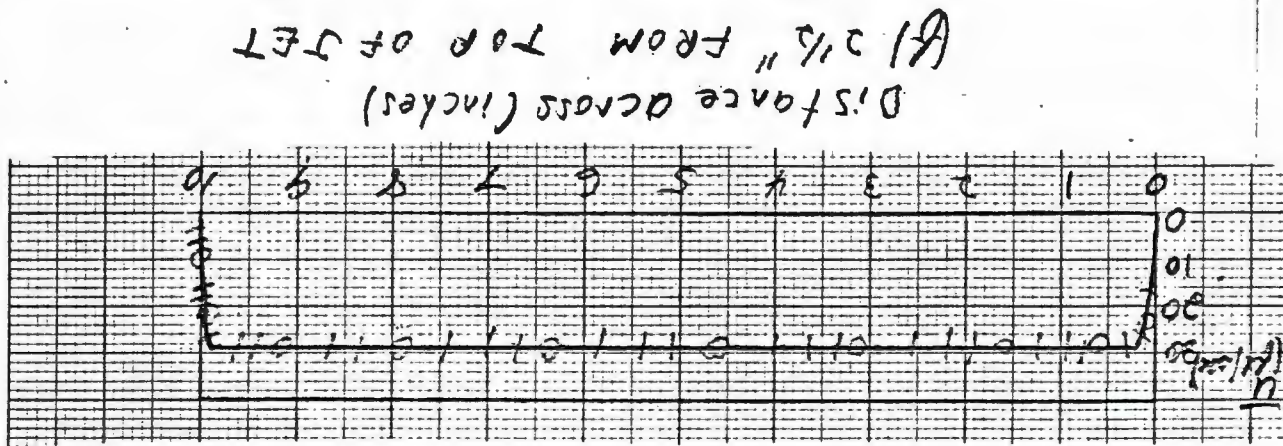 u
30
20
10
0
0 1 2 3 4 5 6 7 8 9 10
Distance across (inches)
2 1/2" FROM TOP OF JET